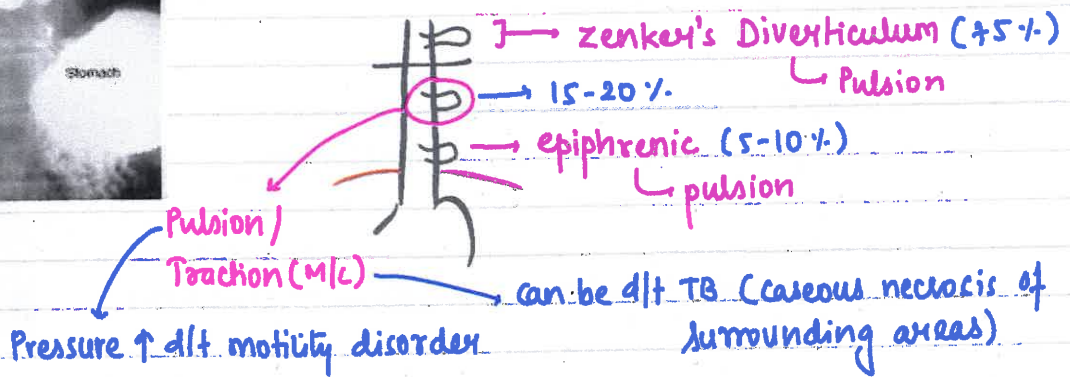 Stomach
Zenker's Diverticulum (75%)
Pulsion
15-20%.
epiphrenic (5-10%)
pulsion
Pulsion/
Traction (M/C)
can be d/t TB (caseous necrosis of
surrounding areas)
Pressure ↑ d/t motility disorder